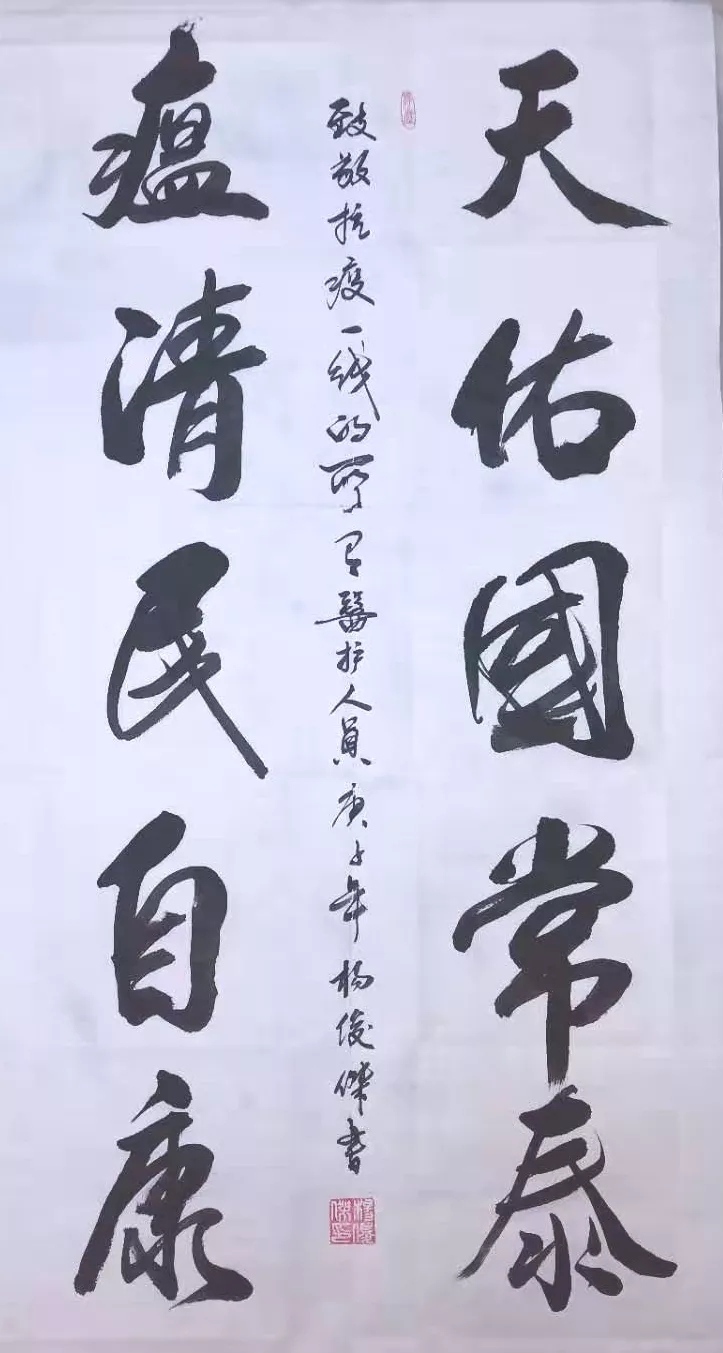 天佑國常泰
致敬抗疫一线的所有醫护人員庚子年杨俊傑书
瘟清民自康